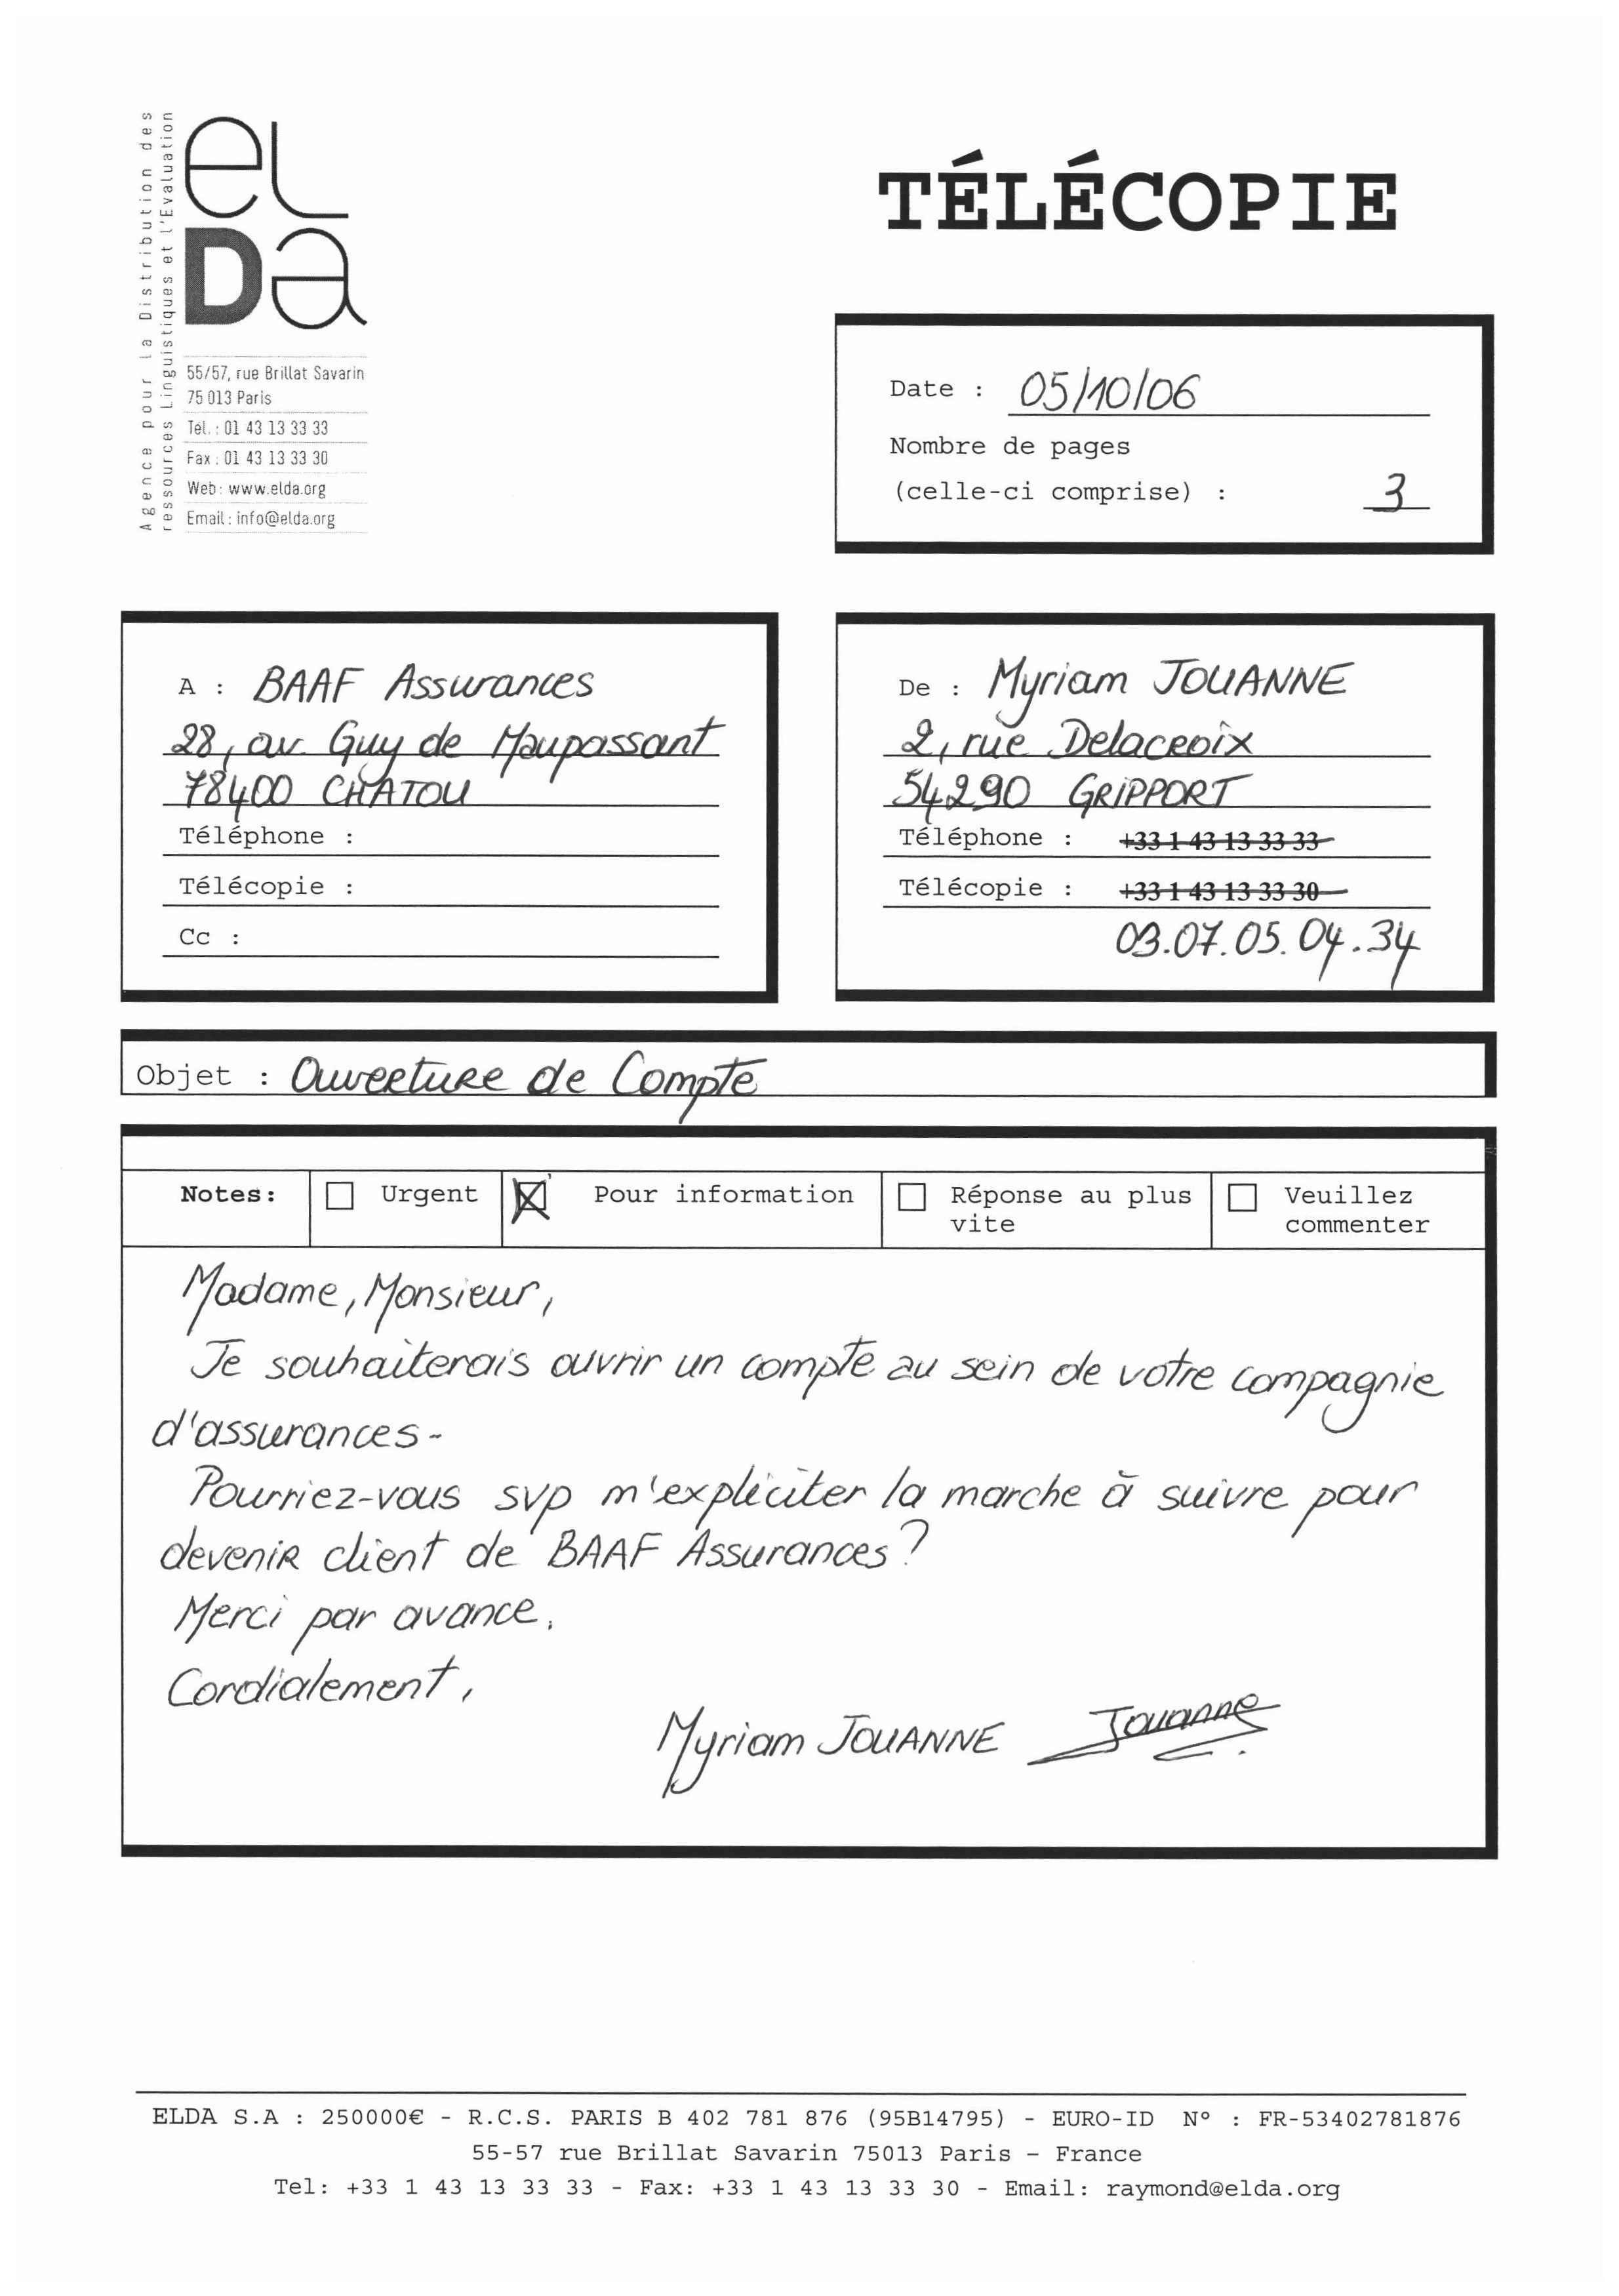 Agence pour la Distribution des
ressources Linguistiques et l'Evaluation
eLDa
55/57, rue Brillat Savarin
75 013 Paris
Tél. : 01 43 13 33 33
Fax : 01 43 13 33 30
Web : www.elda.org
Email : info@elda.org
TÉLÉCOPIE
Date : 05/10/06
Nombre de pages
(celle-ci comprise) : 3
A : BAAF Assurances
28, av. Guy de Maupassant
78400 CHATOU
Téléphone :
Télécopie :
Cc :
De : Myriam JOUANNE
2, rue Delacroix
54290 GRIPPORT
Téléphone : +33 1 43 13 33 33
Télécopie : +33 1 43 13 33 30
03.07.05.04.34
Objet : Ouverture de Compte
Notes: Urgent Pour information Réponse au plus vite Veuillez commenter
Madame, Monsieur,
Je souhaiterais ouvrir un compte au sein de votre compagnie
d'assurances-
Pourriez-vous svp m'expliciter la marche à suivre pour
devenir client de BAAF Assurances ?
Merci par avance.
Cordialement,
Myriam JOUANNE Jouanne
ELDA S.A : 250000€ - R.C.S. PARIS B 402 781 876 (95B14795) - EURO-ID N° : FR-53402781876
55-57 rue Brillat Savarin 75013 Paris – France
Tel: +33 1 43 13 33 33 - Fax: +33 1 43 13 33 30 - Email: raymond@elda.org